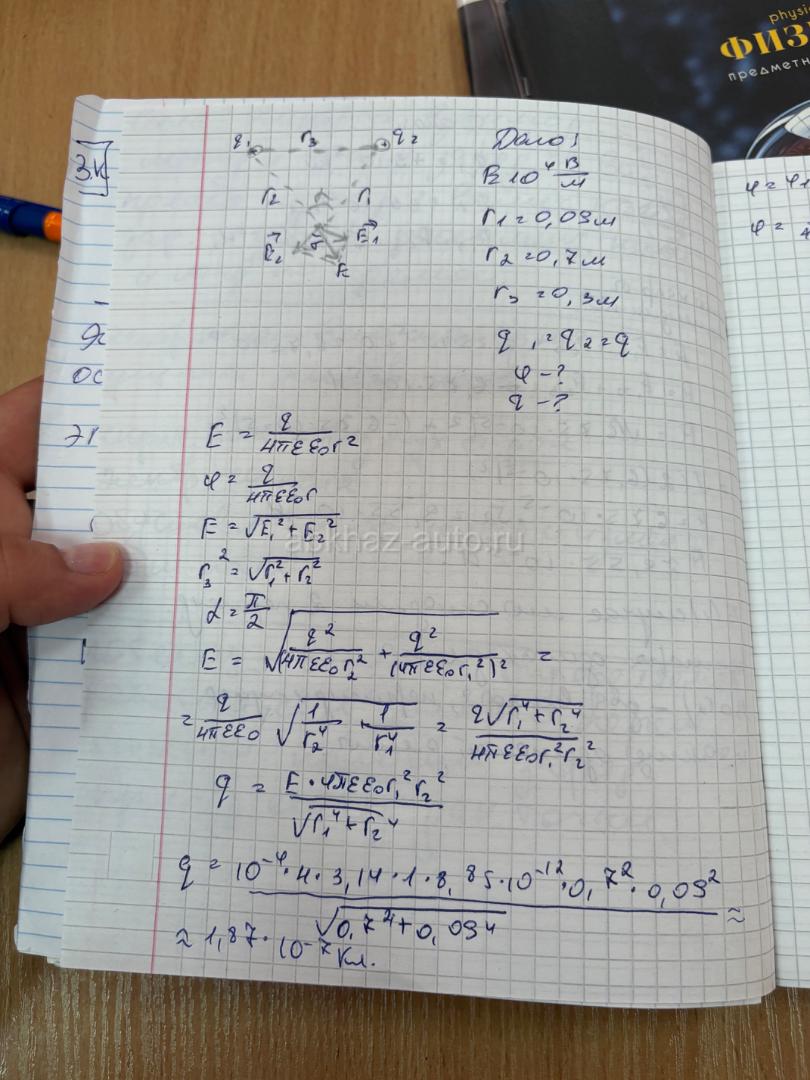 physi
ФИЗ
предметн
3к
q₁ r₃ q₂
r₂ r₁
E₂ E₁
E
Дано:
E=10⁴ В/м
r₁ = 0,09м
r₂ = 0,7м
r₃ = 0,3м
q₁ = q₂ = q
φ - ?
q - ?
E = q/4πεε₀r²
φ = q/4πεε₀r
E = √E₁² + E₂²
r₃² = √r₁² + r₂²
α = π/2
E = √q²/4πεε₀r₂² + q²/(4πεε₀r₁²)² =
= q/4πεε₀ √1/r₂⁴ + 1/r₁⁴ = q√r₁⁴ + r₂⁴/4πεε₀r₁²r₂²
q = E · 4πεε₀r₁²r₂²/√r₁⁴ + r₂⁴
q = 10⁻⁴ · 4 · 3,14 · 1 · 8,85 · 10⁻¹² · 0,7² · 0,09²/√0,7⁴ + 0,09⁴ ≈
≈ 1,87 · 10⁻⁷ Кл.
φ = φ₁
φ =
abkhaz-auto.ru